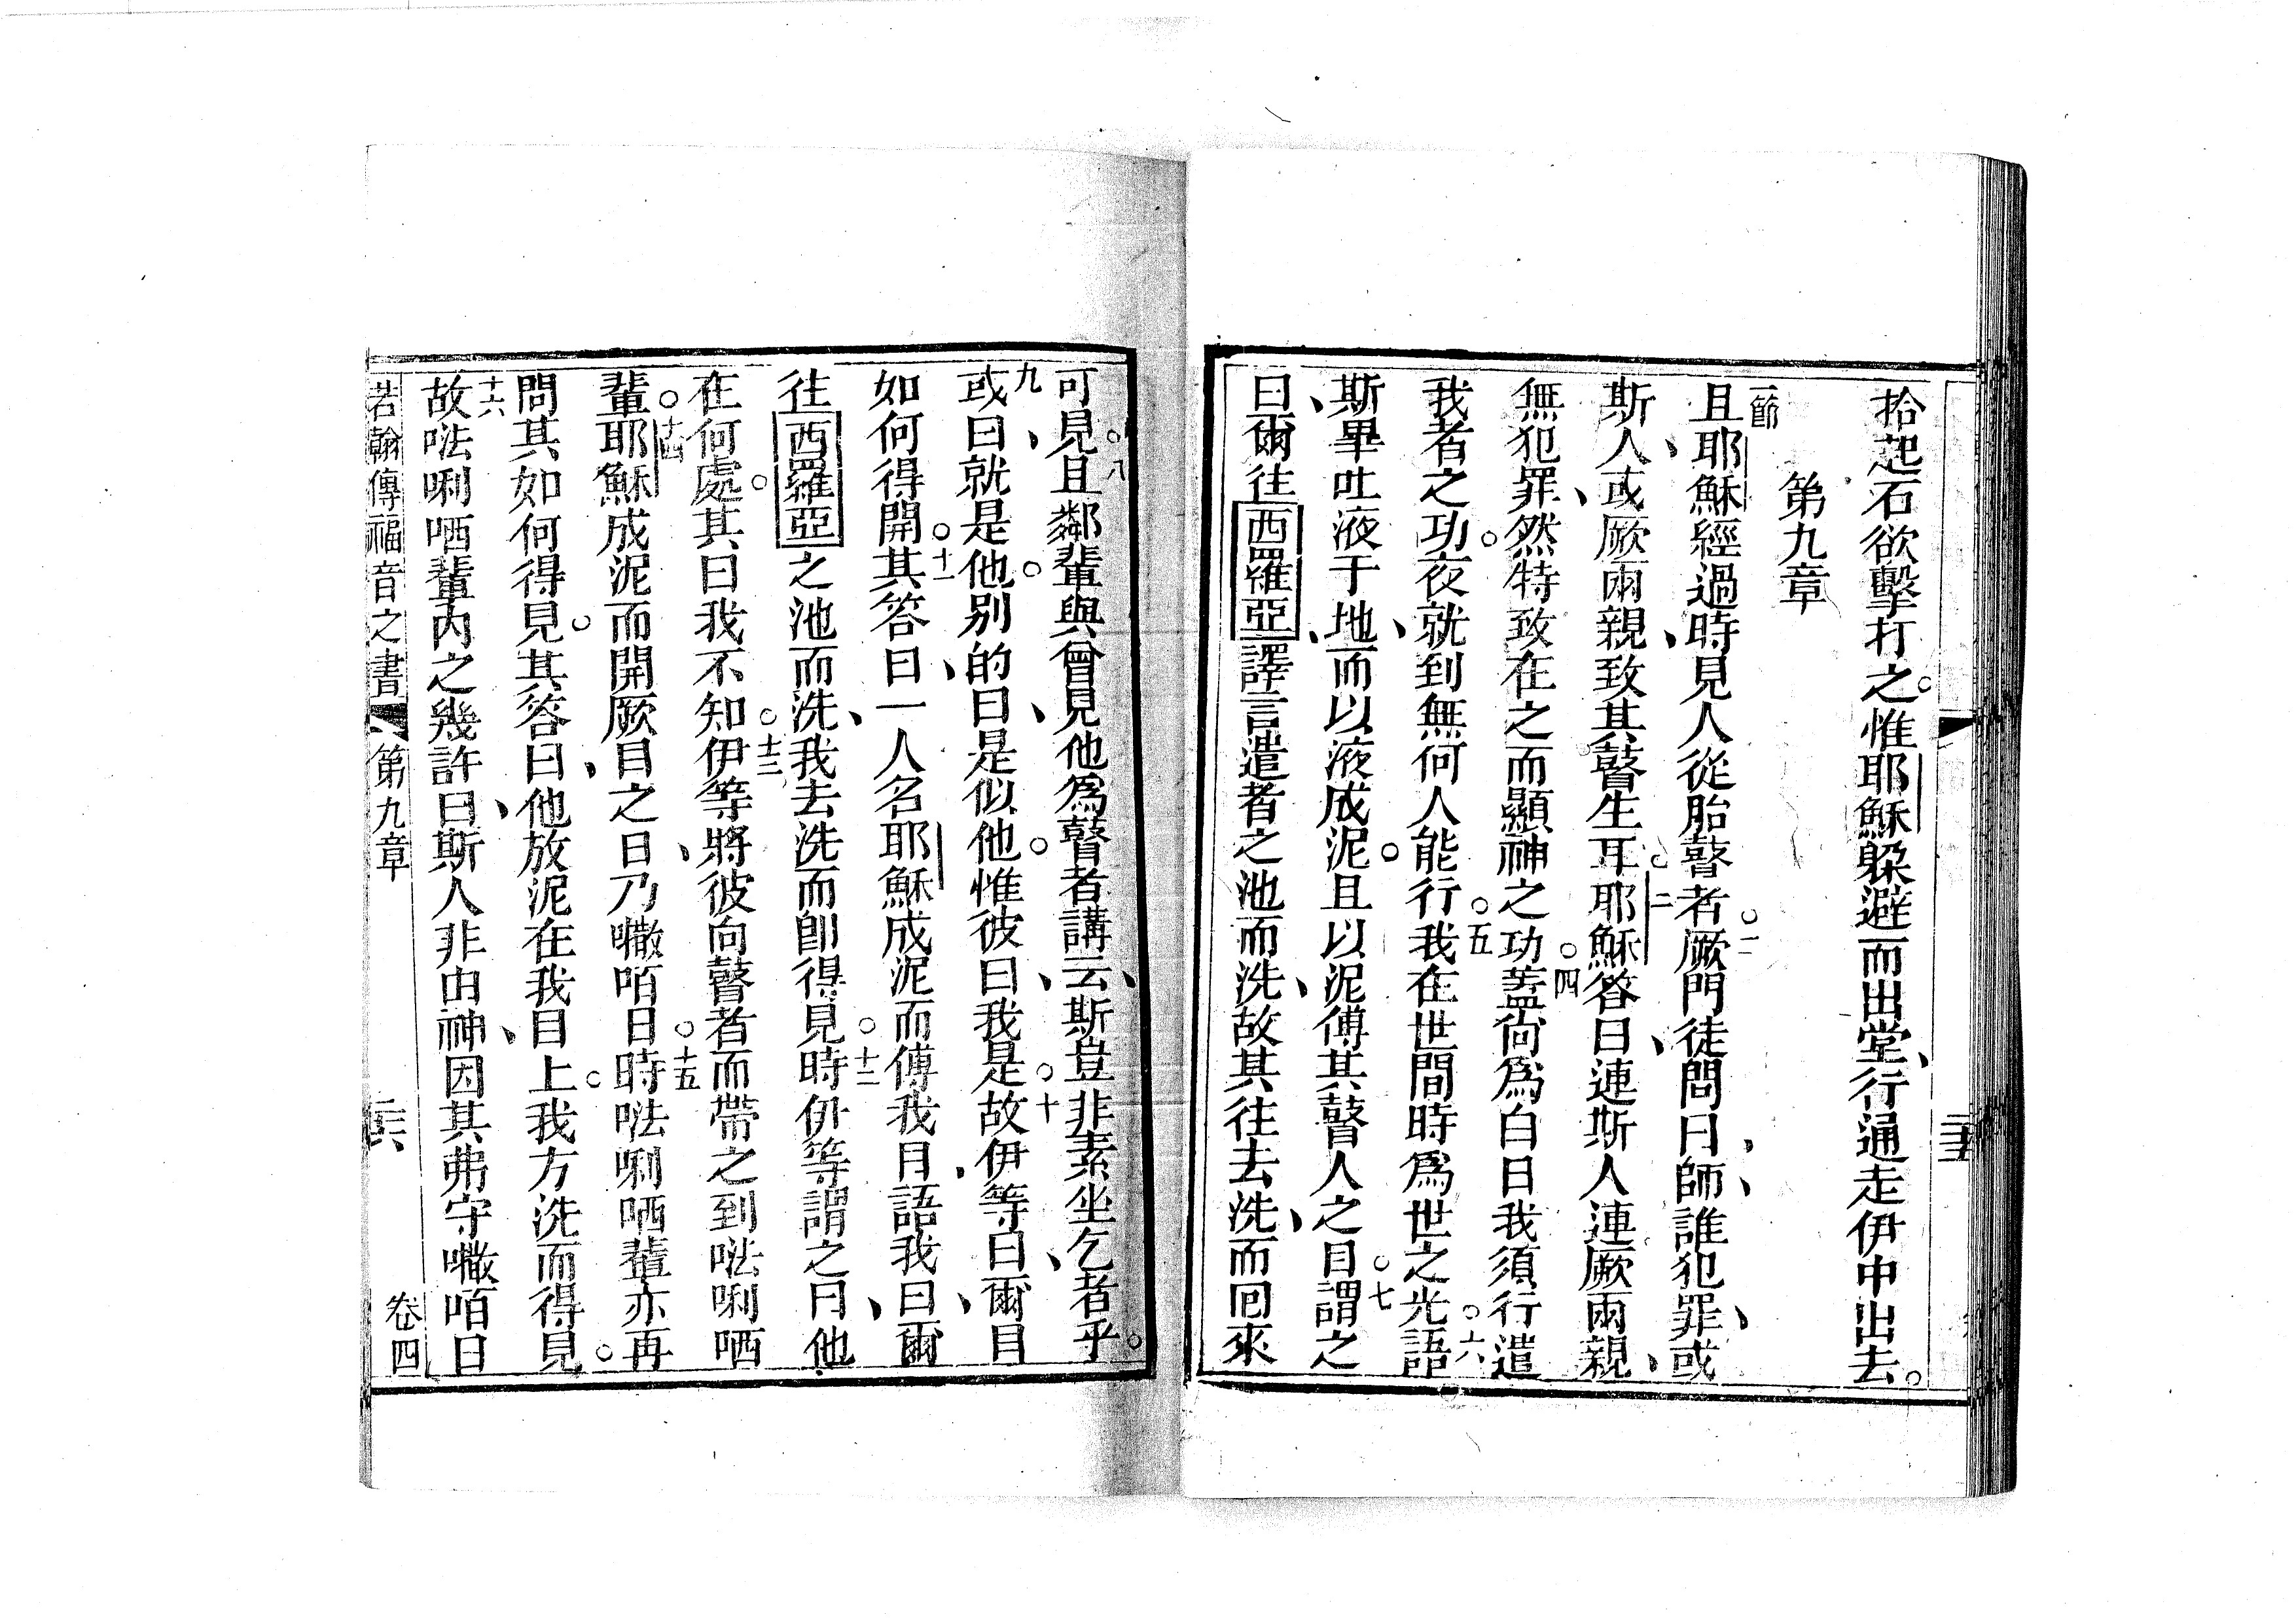 拾起石欲擊打之。惟耶穌躱避而出堂、行通走伊中出去。
第九章
一節且耶穌經過時見人從胎瞽者。二厥門徒問曰、師、誰犯罪、或
斯人、或厥兩親、致其瞽生耳。三耶穌答曰、連斯人連厥兩親、
無犯罪、然特致在之而顯神之功。四蓋尚為白日我須行遣
我者之功。夜就到無何人能行。五我在世間時為世之光。六語
斯畢吐液于地、而以液成泥。且以泥傅其瞽人之目。七謂之
曰、爾往西羅亞、譯言遣者之池而洗、故其往去洗、而回來
可見。八且鄰輩與曾見他為瞽者講云、斯豈非素坐乞者乎。
九或曰、就是他。別的曰、是似他。惟彼曰、我是。十故伊等曰、爾目
如何得開。十一其答曰、一人名耶穌成泥而傅我目、語我曰、爾
往西羅亞之池而洗、我去洗而即得見。十二時伊等謂之曰、他
在何處。其曰我不知。十三伊等將彼向瞽者而帶之到𠵽唎哂
輩。十四耶穌成泥而開厥目之日、乃㘔咟日。十五時𠵽唎哂輩亦再
問其如何得見。其答曰、他放泥在我目上。我方洗而得見。
十六故𠵽唎哂輩內之幾許曰、斯人非由神、因其弗守㘔咟日
若翰傳福音之書 第九章 二十六 卷四
二十五